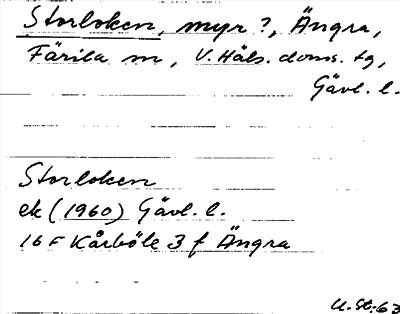 Storloken, myr?, Ängra,
Färila sn, V. Häls. doms. tg,
Gävl. l.
Storloken
ek (1960) Gävl. l.
16 F Kårböle 3 f Ängra
U. St: 63